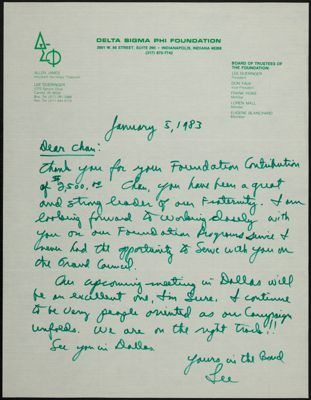 ΔΣΦ
DELTA SIGMA PHI FOUNDATION
INDIANAPOLIS, INDIANA
ALLEN JAMES
LEE DUERINGER
BOARD OF TRUSTEES OF
THE FOUNDATION:
LEE DUERINGER
President
DON FAIR
Vice President
FRANK HUNG
Member
LOREN MALL
Member
EUGENE BLANCHARD
Member
January 5, 1983
Dear Chan:
Thank you for your Foundation Contribution
of $2,500.00 Chan, you have been a great
and strong leader of our Fraternity. I am
looking forward to working closely with
you on our Foundation Programs since I
never had the opportunity to serve with you on
the Grand Council.
Our upcoming meeting in Dallas will
be an excellent one, I'm sure. I continue
to be very people oriented as our Campaign
unfolds. We are on the right track!!
See you in Dallas.
Yours in the Bond
Lee